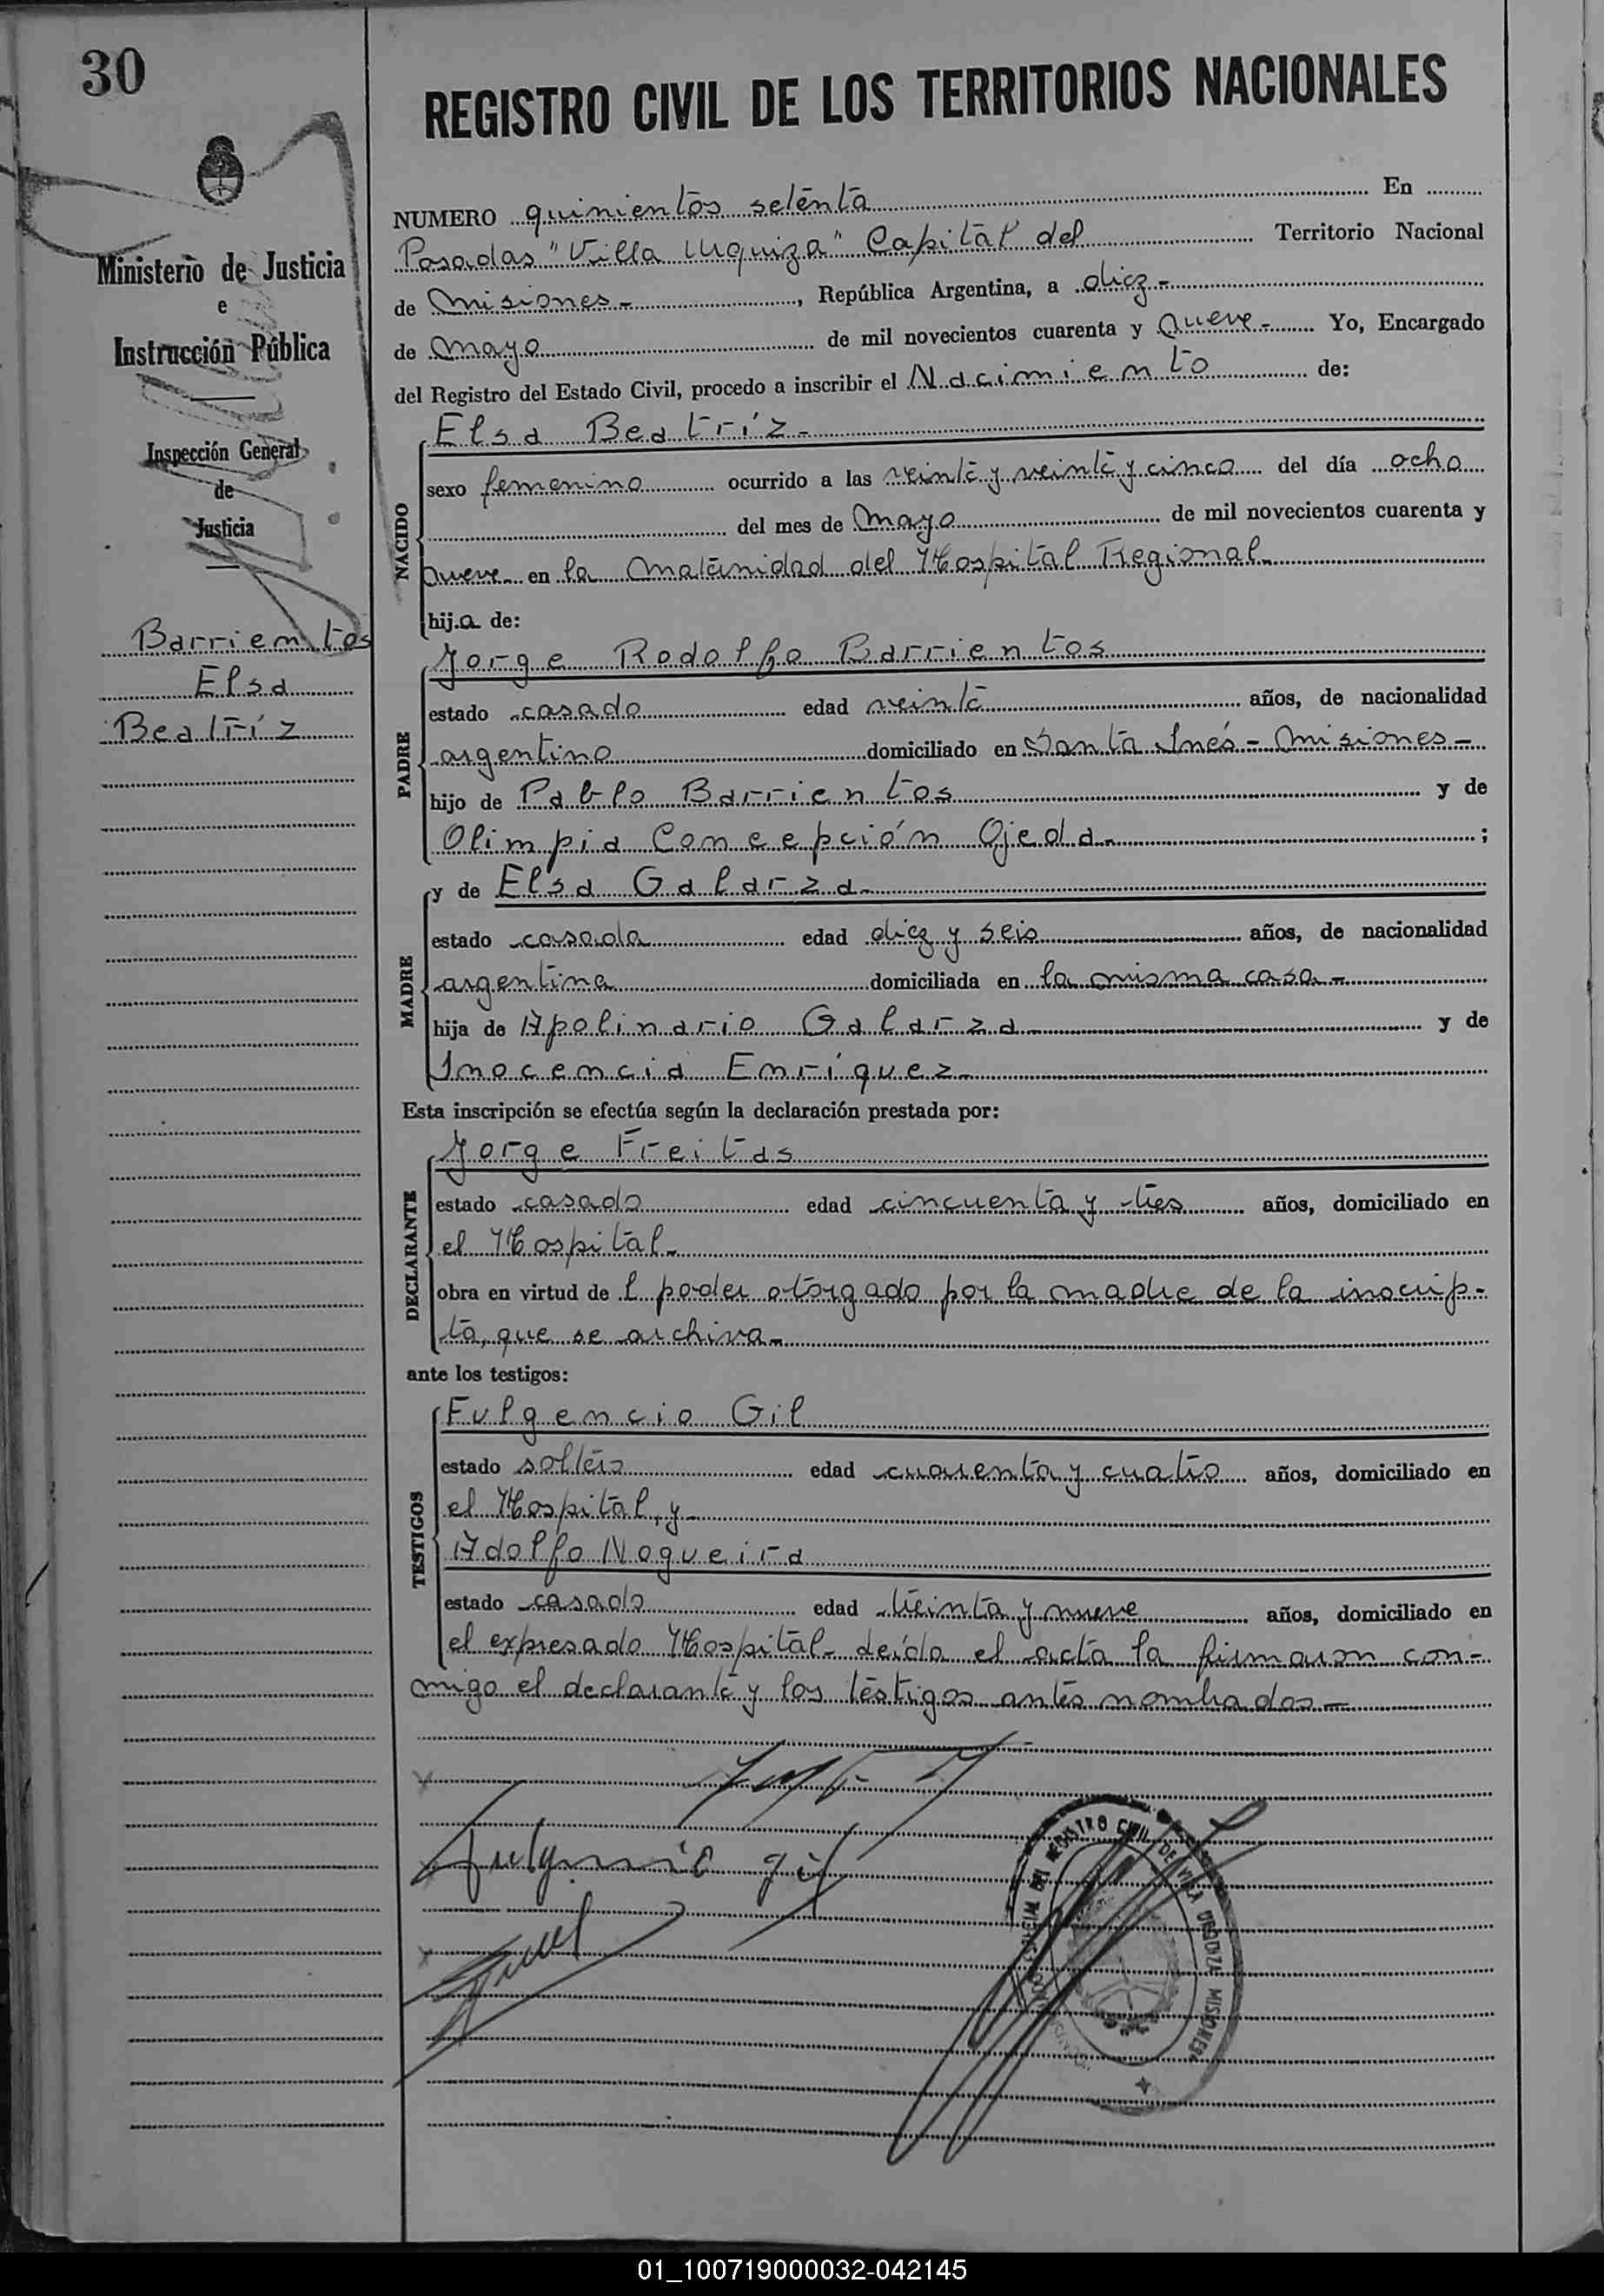 30
REGISTRO CIVIL DE LOS TERRITORIOS NACIONALES
Ministerio de Justicia
e
Instrucción Pública
Inspección General
de
Justicia
Barrientos
Elsa
Beatríz
NUMERO quinientos setenta En
Posadas "Villa Urquiza" Capital del Territorio Nacional
de Misiones-, República Argentina, a diez-
de Mayo de mil novecientos cuarenta y nueve- Yo, Encargado
del Registro del Estado Civil, procedo a inscribir el Nacimiento de:
NACIDO
Elsa Beatríz-
sexo femenino ocurrido a las veinte y veinte y cinco del día ocho
del mes de Mayo de mil novecientos cuarenta y
nueve en la Maternidad del Hospital Regional-
hija de:
PADRE
Jorge Rodolfo Barrientos
estado casado edad veinte años, de nacionalidad
argentino domiciliado en Santa Inés - Misiones-
hijo de Pablo Barrientos y de
Olimpia Concepción Ojeda- ;
MADRE
y de Elsa Galarza-
estado casada edad diez y seis años, de nacionalidad
argentina domiciliada en la misma casa-
hija de Apolinario Galarza- y de
Inocencia Enríquez-
Esta inscripción se efectúa según la declaración prestada por:
DECLARANTE
Jorge Freitas
estado casado edad cincuenta y tres años, domiciliado en
el Hospital-
obra en virtud de l poder otorgado por la madre de la inscrip-
ta, que se archiva-
ante los testigos:
TESTIGOS
Fulgencio Gil
estado soltero edad cuarenta y cuatro años, domiciliado en
el Hospital, y-
Adolfo Nogueira
estado casado edad treinta y nueve años, domiciliado en
el expresado Hospital- Leída el acta la firmaron con-
migo el declarante y los testigos antes nombrados-
Fulgencio Gil
DEL REGISTRO CIVIL DE VILLA URQUIZA MISIONES
01_100719000032-042145